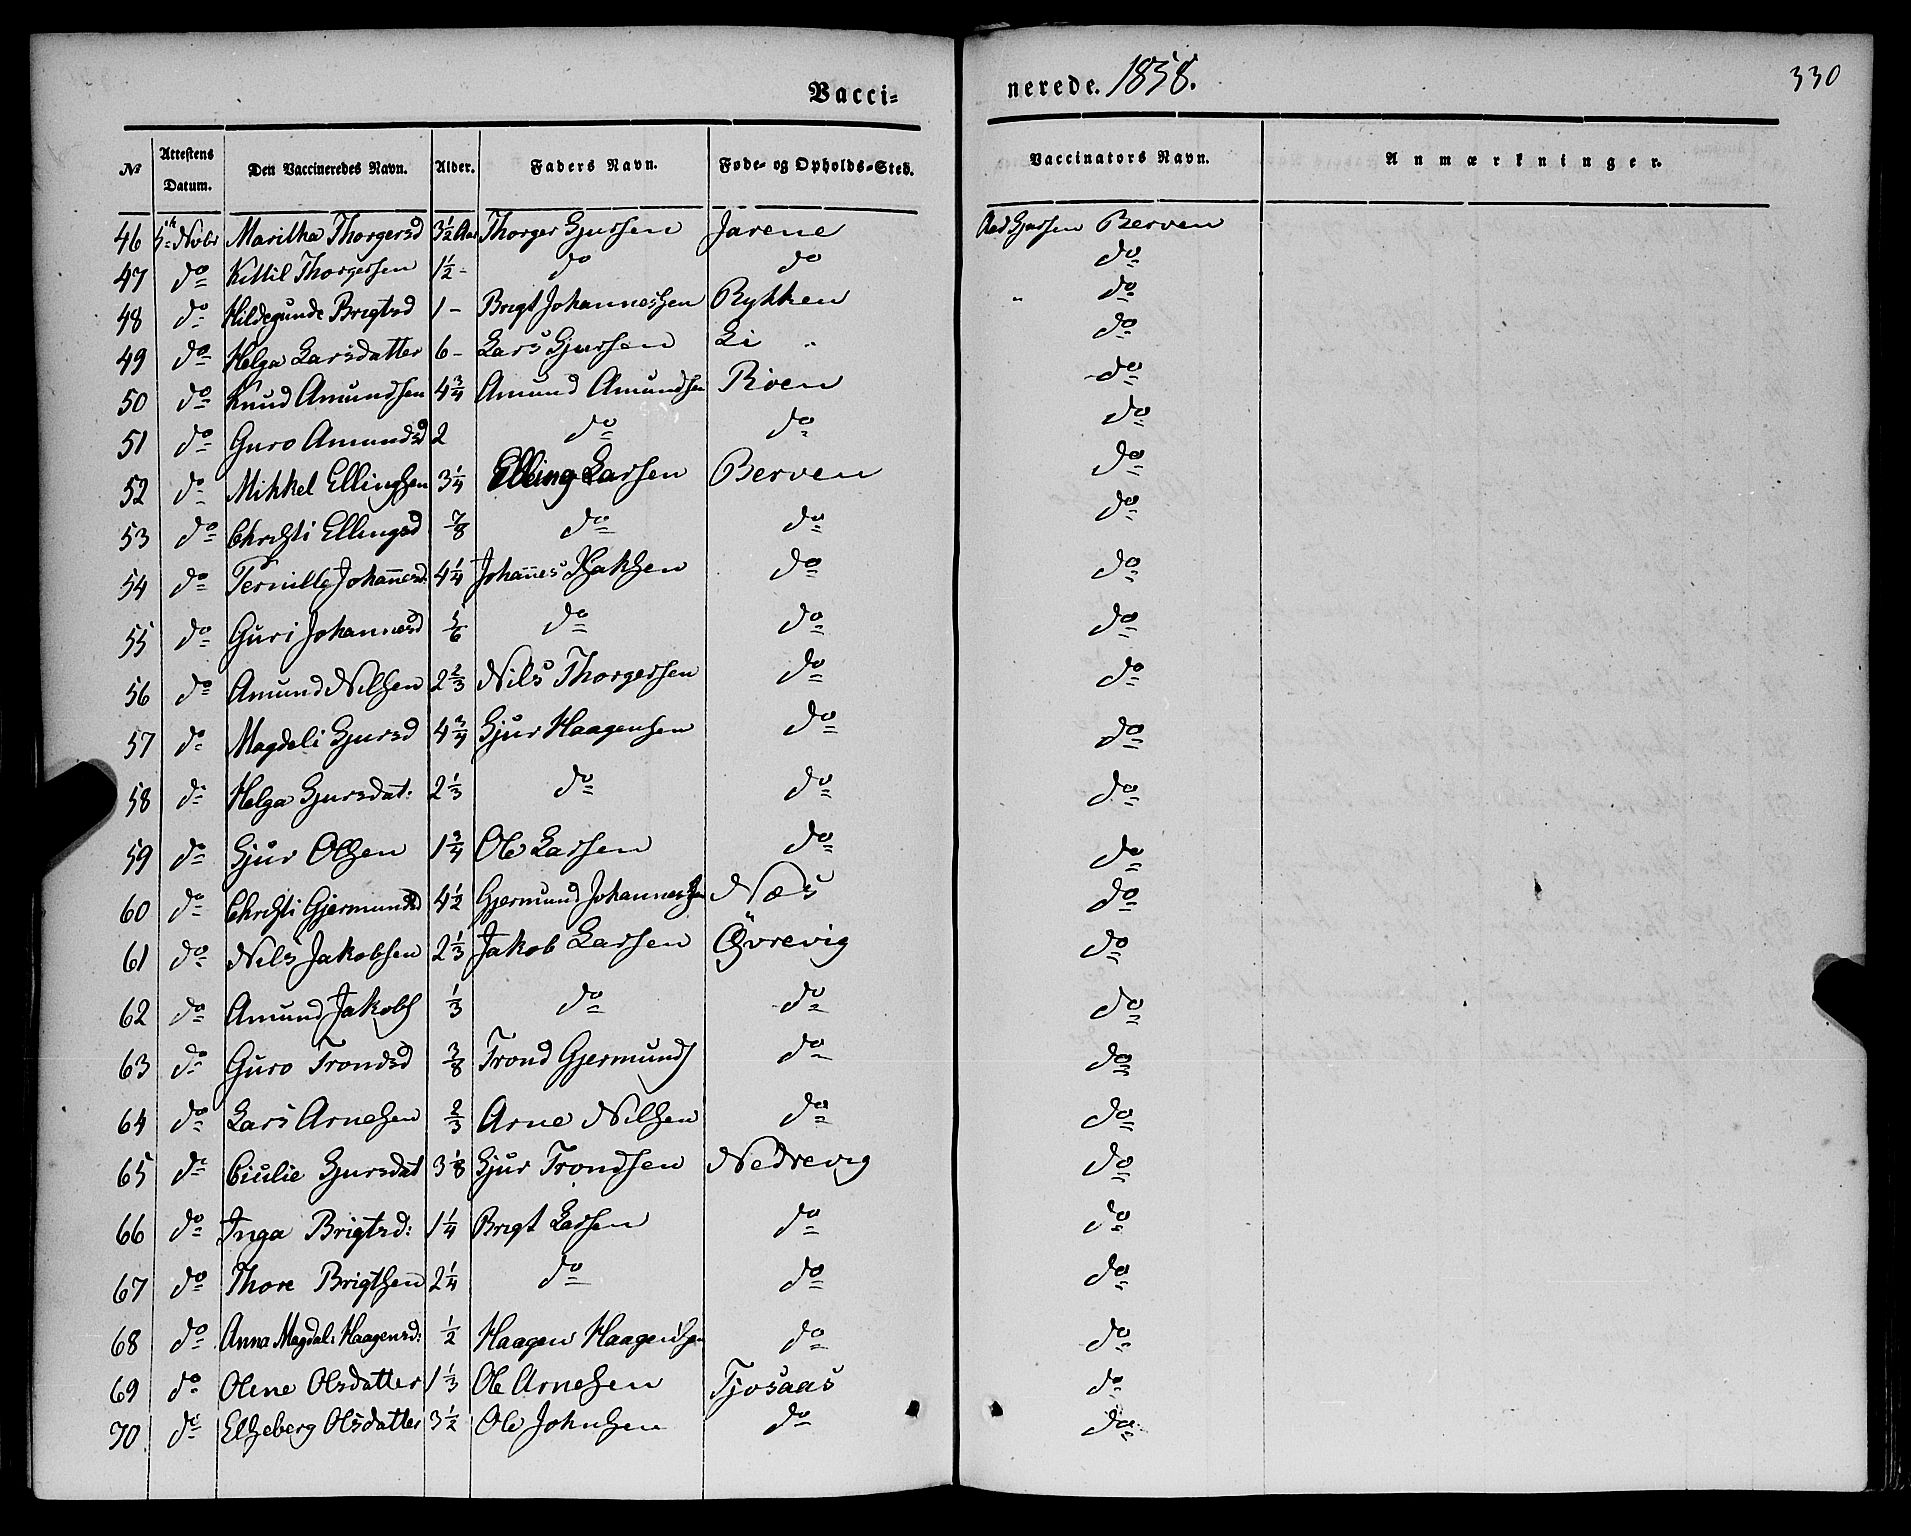 Vacci-
nerede. 1858.
330
No
Attestens Datum.
Den Vaccineredes Navn.
Alder.
Faders Navn.
Føde- og Opholds-Sted.
Vaccinators Navn.
Anmærkninger.
46 5te Novbr Maritha Thorgersd 3½ Aar Thorger Sjursen Jarene Aad Sjursen Berven
47 do Kittil Thorgersen 1½ - do do do
48 do Hildegunde Brigtsd 1 - Brigt Johannessen Rykken " do
49 do Helga Larsdatter 6 - Lars Sjursen Li " do
50 do Knud Amundsen 4¾ Amund Amundsen Röen do
51 do Guro Amundsd 2 do do do
52 do Mikkel Ellingsen 3¼ Elling Larsen Berven do
53 do Christi Ellingsd ⅞ do do do
54 do Pernille Johannesd: 4¼ Johannes Isaksen do do
55 do Guri Johannesd ⅚ do do do
56 do Amund Nilsen 2⅔ Nils Thorgersen do do
57 do Magdeli Sjursd 4¾ Sjur Haagensen do do
58 do Helga Sjursdat: 2⅓ do do do
59 do Sjur Olsen 1¾ Ole Larsen do do
60 do Christi Gjermundsd 4½ Gjermund Johannessen Næs do
61 do Nils Jakobsen 2⅓ Jakob Larsen Øvrevig do
62 do Amund Jakobs ⅓ do do do
63 do Guro Trondsd ⅜ Trond Gjermunds do do
64 do Lars Arnesen ⅔ Arne Nilsen do do
65 do Cicilie Sjursdat 3⅛ Sjur Trondsen Nedrevig do
66 do Inga Brigtsd: 1¼ Brigt Larsen do do
67 do Thore Brigtsen 2¼ do do do
68 do Anna Magdal: Haagensd: ½ Haagen Haagensen do do
69 do Olene Olsdatter 1⅓ Ole Arnesen Tjosaas do
70. do Elseberg Olsdatter 3½ Ole Johnsen do do